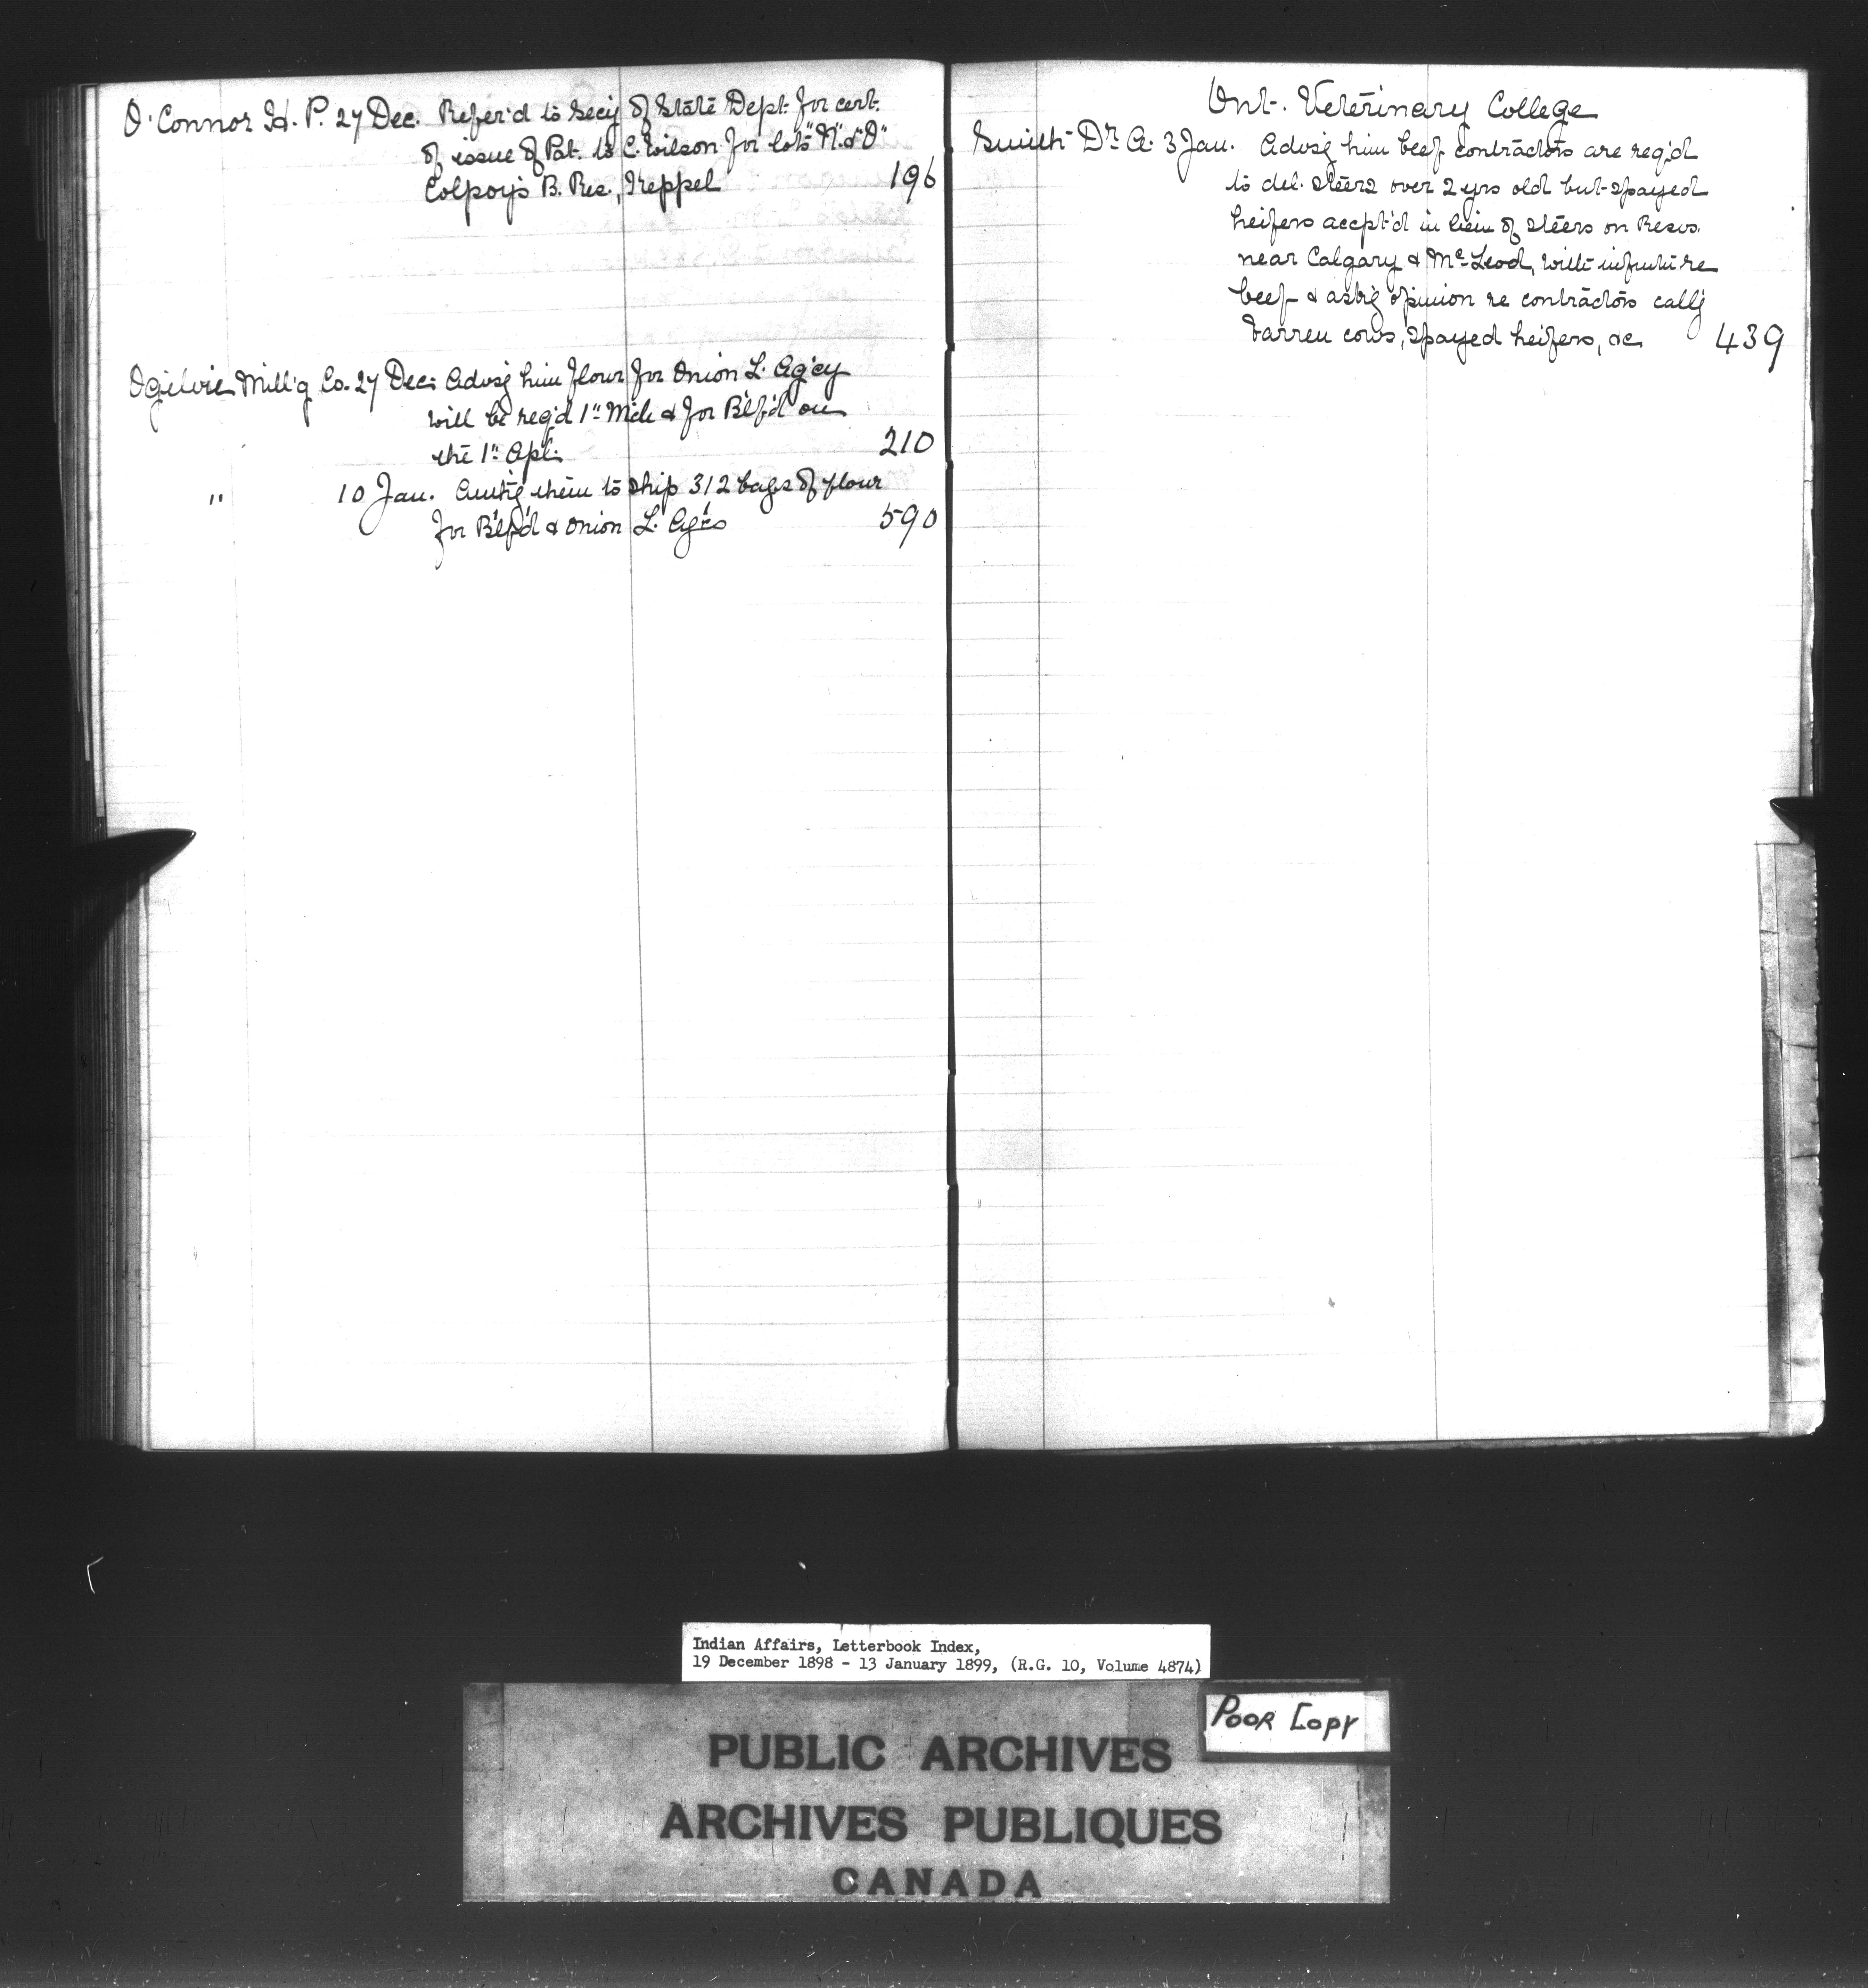 O'Connor H. P. 27 Dec. Refer'd to Secy of State Dept. for cert.
of issue of Pat. to C. Wilson for lots "N" & "O"
Colpoy's B. Res., Keppel 196
Ogilvie Mill'g Co. 27 Dec. Advs'g him flour for Onion L. Ag'cy
will be req'd 1" Mch & for B'lf'd on
the 1" Apl. 210
" 10 Jan. Auth'g them to ship 312 bags of flour
for B'lf'd & Onion L. Ag'cs 590
Ont. Veterinary College
Smith Dr A. 3 Jan. Advs'g him beef contractors are req'd
to del. steers over 2 yrs old but spayed
heifers accpt'd in lieu of steers on Resvs.
near Calgary & McLeod, with re
beef & ask'g opinion re contractors call'g
barren cows, spayed heifers, &c 439
Indian Affairs, Letterbook Index,
19 December 1898 - 13 January 1899, (R.G. 10, Volume 4874)
Poor Copy
PUBLIC ARCHIVES
ARCHIVES PUBLIQUES
CANADA